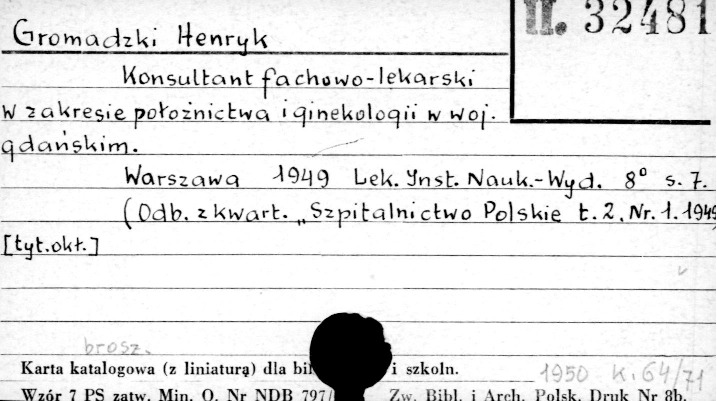 II. 32481
Gromadzki Henryk
Konsultant fachowo-lekarski
w zakresie położnictwa i ginekologii w woj.
gdańskim.
Warszawa 1949 Lek. Inst. Nauk.-Wyd. 8° s. 7.
(Odb. z kwart. „Szpitalnictwo Polskie t. 2. Nr. 1. 1949
[tyt. okł.]
brosz.
Karta katalogowa (z liniaturą) dla i szkoln.
1950 K. 64/71
Wzór 7 PS zatw. Min. O. Nr NDB 797/ Zw. Bibl. i Arch. Polsk. Druk Nr 8b.